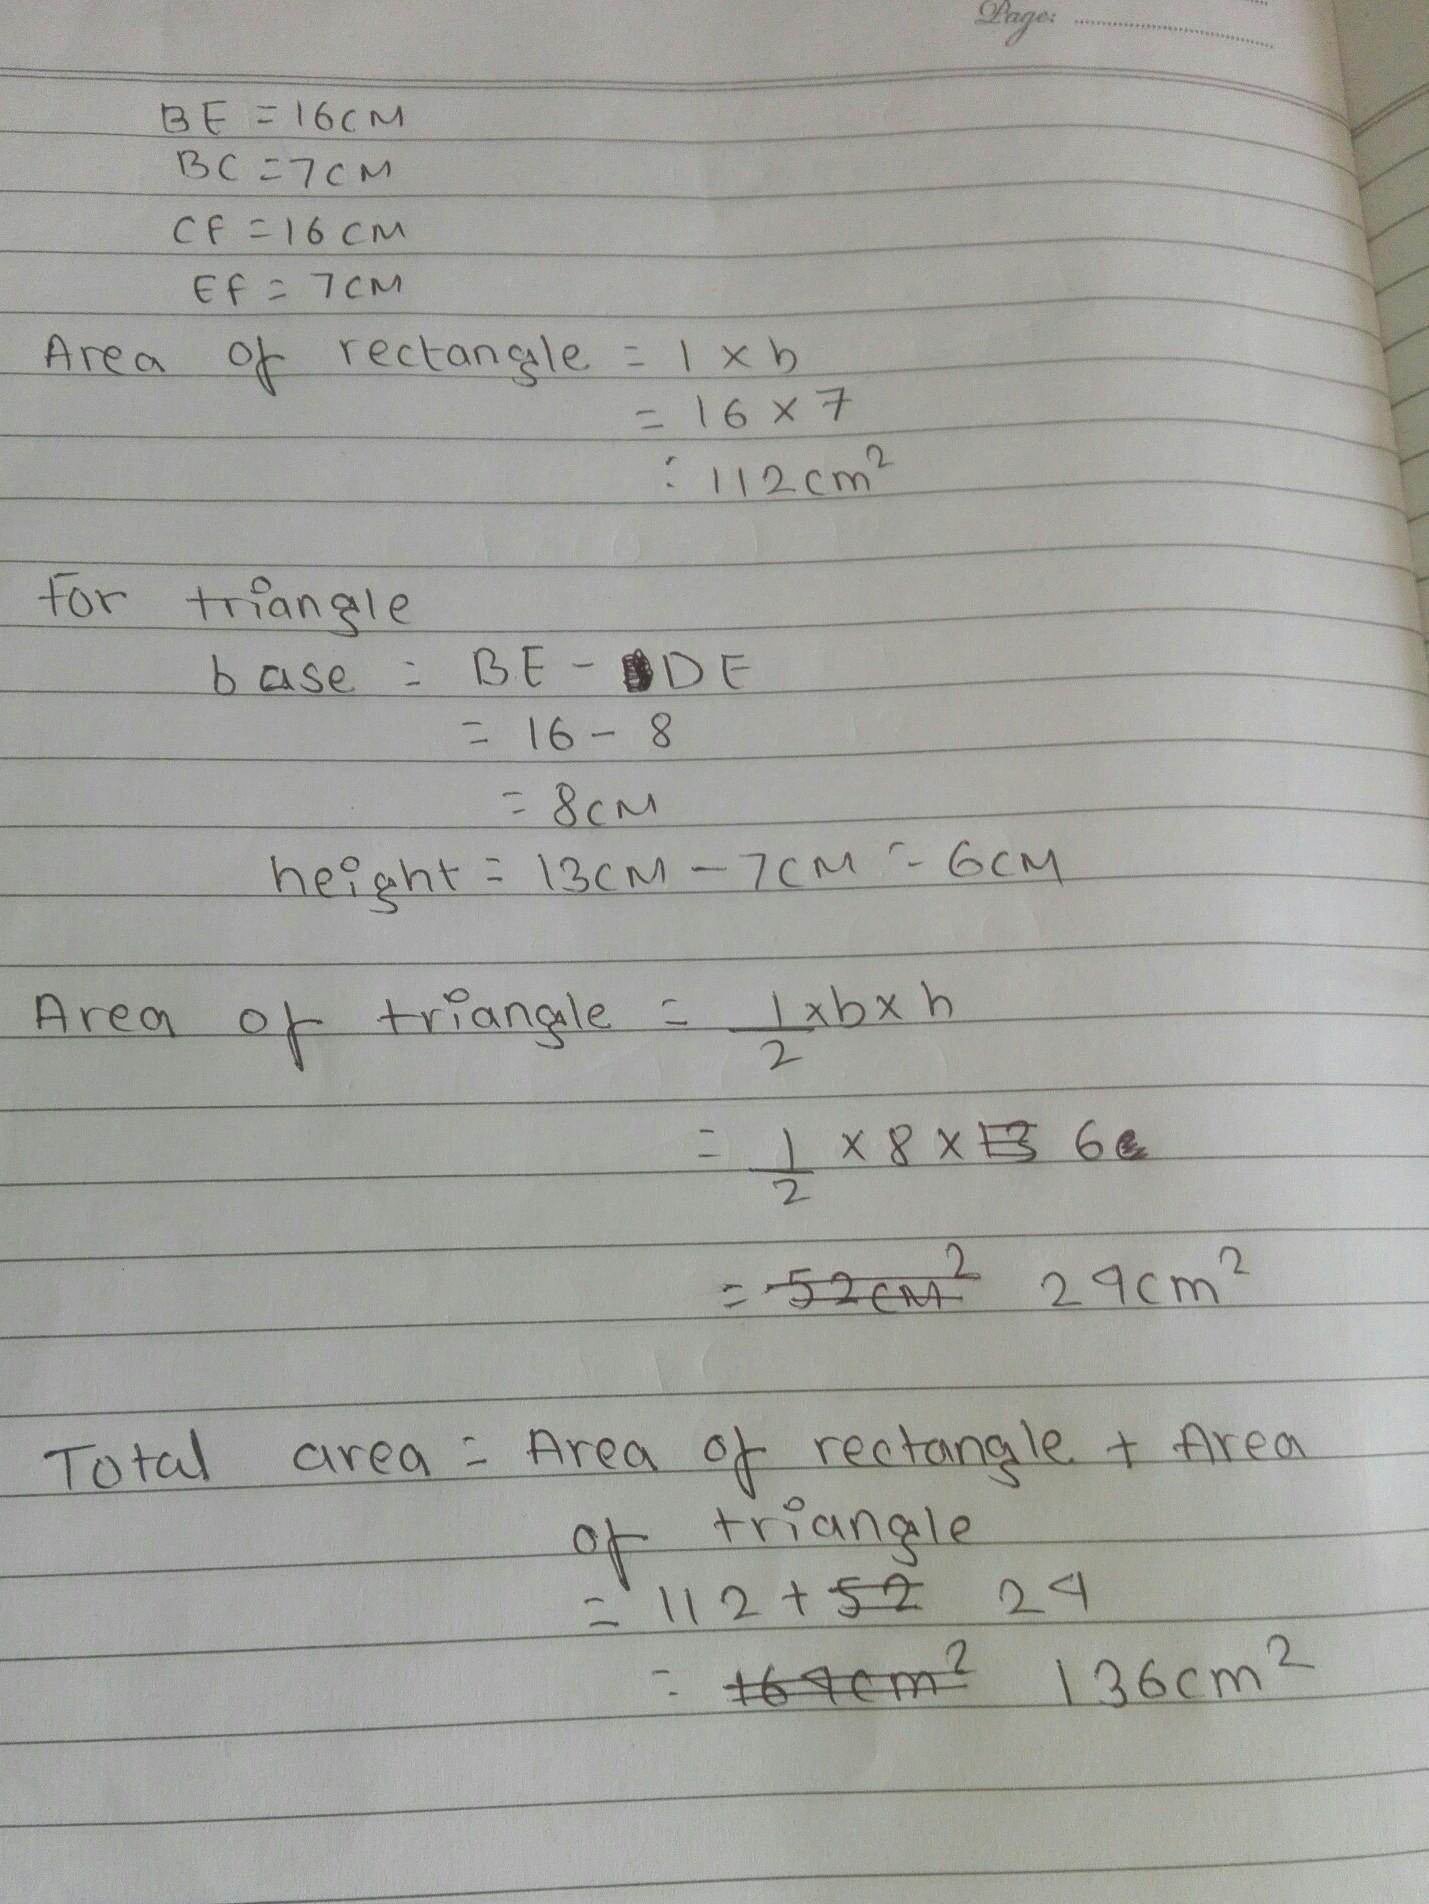 Page:
BE = 16CM
BC = 7CM
CF = 16 CM
EF = 7CM
Area of rectangle = l x b
= 16 x 7
= 112cm²
For triangle
base = BE - DE
= 16 - 8
= 8CM
height = 13CM - 7CM = 6CM
Area of triangle = 1/2 x b x h
= 1/2 x 8 x 13 6
= 52CM² 24cm²
Total area = Area of rectangle + Area
of triangle
= 112 + 52 24
= 164cm² 136cm²